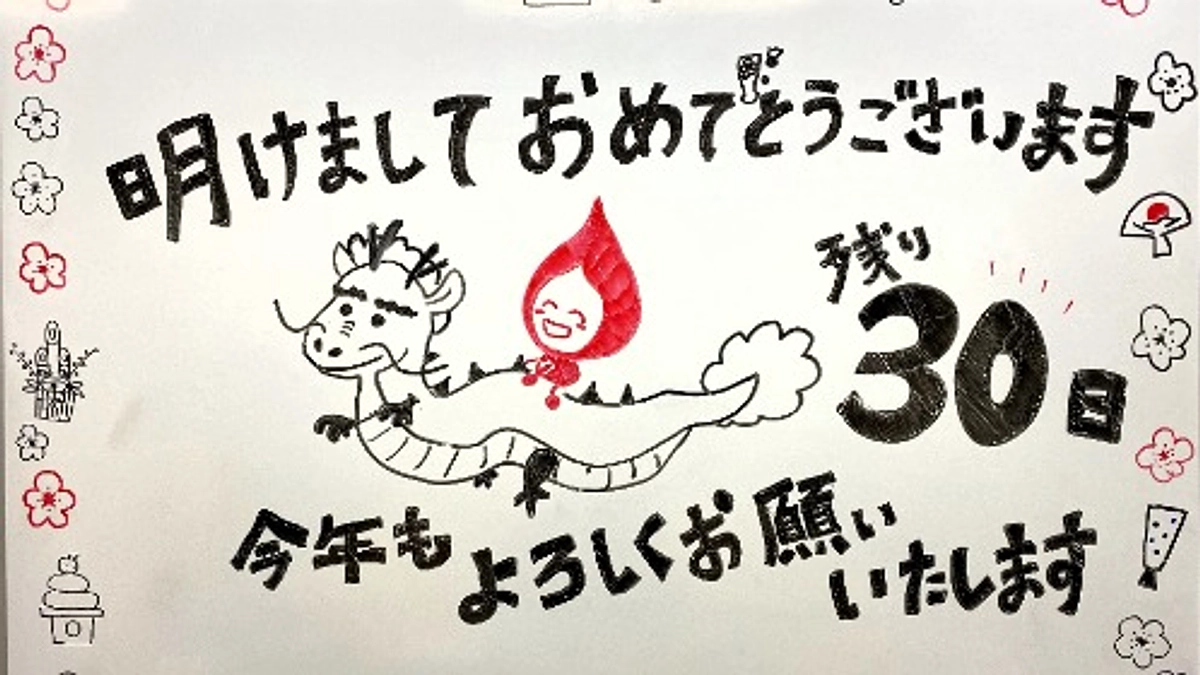 明けまして おめでとうございます
残り
30日
今年も よろしくお願い
いたします